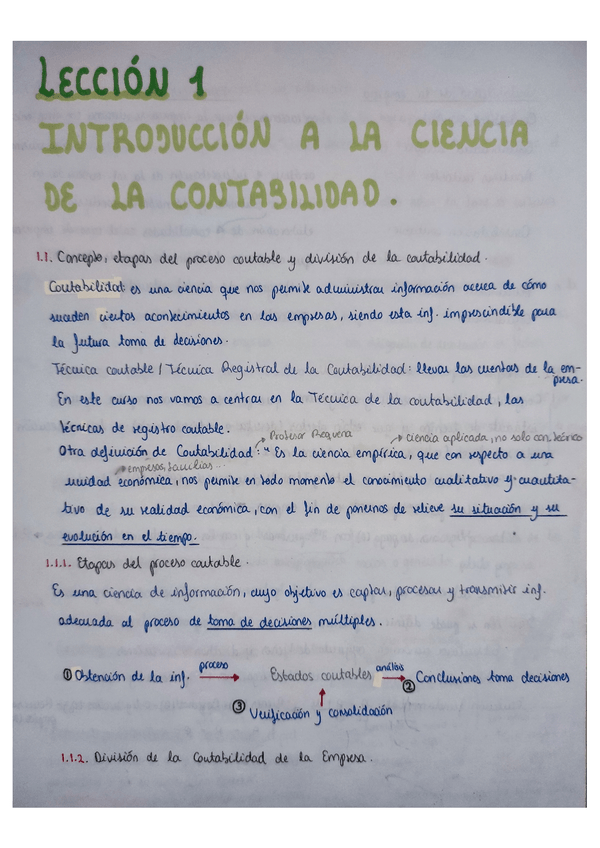 LECCIÓN 1
INTRODUCCIÓN A LA CIENCIA
DE LA CONTABILIDAD.
1.1. Concepto, etapas del proceso contable y división de la contabilidad.
Contabilidad: es una ciencia que nos permite administrar información acerca de cómo
suceden ciertos acontecimientos en las empresas, siendo esta inf. imprescindible para
la futura toma de decisiones.
Técnica contable / Técnica Registral de la Contabilidad: llevar las cuentas de la em-
presa.
En este curso nos vamos a centrar en la Técnica de la contabilidad, las
técnicas de registro contable.
Profesor Requena
ciencia aplicada, no solo con teórico
Otra definición de Contabilidad: "Es la ciencia empírica, que con respecto a una
empresas, familias...
unidad económica, nos permite en todo momento el conocimiento cualitativo y cuantita-
tivo de su realidad económica, con el fin de ponernos de relieve su situación y su
evolución en el tiempo.
1.1.1. Etapas del proceso contable.
Es una ciencia de información, cuyo objetivo es captar, procesar y transmitir inf.
adecuada al proceso de toma de decisiones múltiples.
① Obtención de la inf. proceso → Estados contables análisis → ② Conclusiones toma decisiones
↑
③ Verificación y consolidación
1.1.2. División de la Contabilidad de la Empresa.